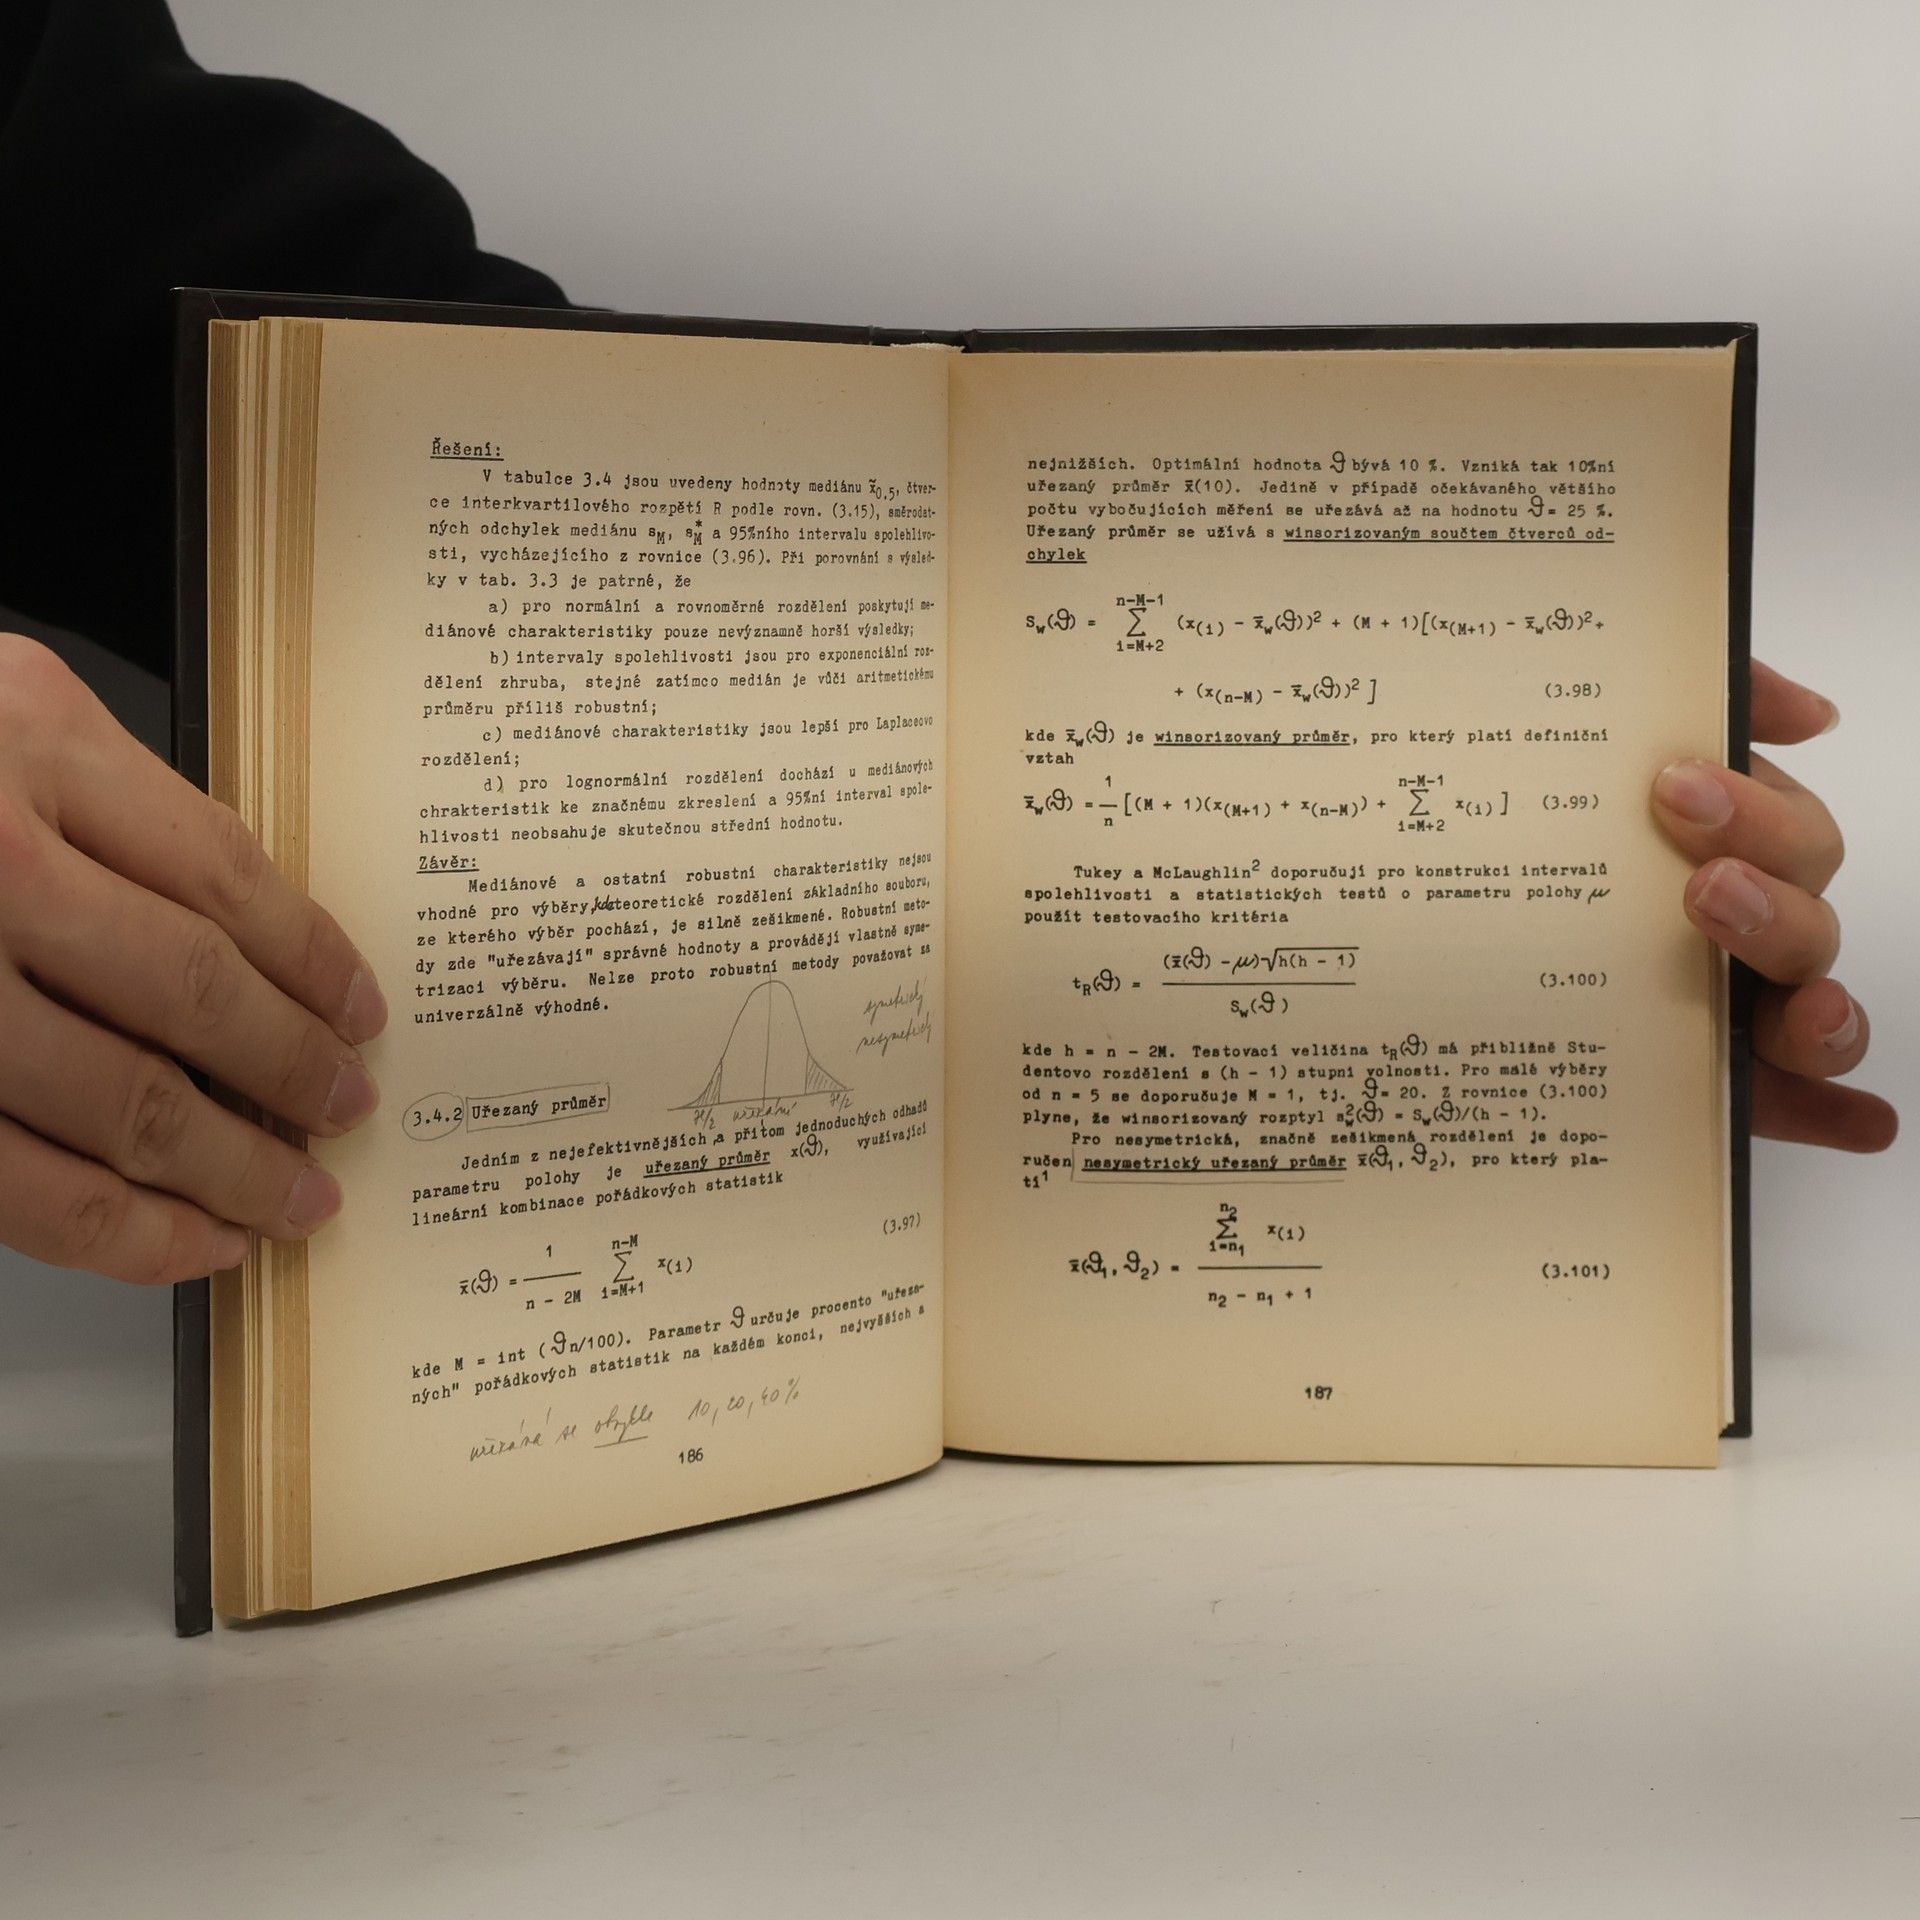 Řešení:
V tabulce 3.4 jsou uvedeny hodnoty mediánu x̃0,5, čtver-
ce interkvartilového rozpětí R podle rovn. (3.15), směrodat-
ných odchylek mediánu sM, s*M a 95%ního intervalu spolehlivo-
sti, vycházejícího z rovnice (3.96). Při porovnání s výsled-
ky v tab. 3.3 je patrné, že
a) pro normální a rovnoměrné rozdělení poskytují me-
diánové charakteristiky pouze nevýznamně horší výsledky;
b) intervaly spolehlivosti jsou pro exponenciální roz-
dělení zhruba, stejné zatímco medián je vůči aritmetickému
průměru příliš robustní;
c) mediánové charakteristiky jsou lepší pro Laplaceovo
rozdělení;
d) pro lognormální rozdělení dochází u mediánových
chrakteristik ke značnému zkreslení a 95%ní interval spole-
hlivosti neobsahuje skutečnou střední hodnotu.
Závěr:
Mediánové a ostatní robustní charakteristiky nejsou
vhodné pro výběry, kde teoretické rozdělení základního souboru,
ze kterého výběr pochází, je silně zešikmené. Robustní meto-
dy zde "uřezávají" správné hodnoty a provádějí vlastně syme-
trizaci výběru. Nelze proto robustní metody považovat za
univerzálně výhodné.
symetrický
nesymetrický
3.4.2 Uřezaný průměr
Jedním z nejefektivnějších a přitom jednoduchých odhadů
parametru polohy je uřezaný průměr x(ϑ), využívající
lineární kombinace pořádkových statistik
x̄(ϑ) = 1/(n - 2M) Σ_{i=M+1}^{n-M} x(i) (3.97)
kde M = int (ϑn/100). Parametr ϑ určuje procento "uřeza-
ných" pořádkových statistik na každém konci, nejvyšších a
uřezává se obykle 10, 20, 40%
186
nejnižších. Optimální hodnota ϑ bývá 10 %. Vzniká tak 10%ní
uřezaný průměr x̄(10). Jedině v případě očekávaného většího
počtu vybočujících měření se uřezává až na hodnotu ϑ = 25 %.
Uřezaný průměr se užívá s winsorizovaným součtem čtverců od-
chylek
Sw(ϑ) = Σ_{i=M+2}^{n-M-1} (x(i) - x̄w(ϑ))² + (M + 1)[(x(M+1) - x̄w(ϑ))² +
+ (x(n-M) - x̄w(ϑ))² ] (3.98)
kde x̄w(ϑ) je winsorizovaný průměr, pro který platí definiční
vztah
x̄w(ϑ) = 1/n [(M + 1)(x(M+1) + x(n-M)) + Σ_{i=M+2}^{n-M-1} x(i) ] (3.99)
Tukey a McLaughlin² doporučují pro konstrukci intervalů
spolehlivosti a statistických testů o parametru polohy μ
použít testovacího kritéria
tR(ϑ) = (x̄(ϑ) - μ)√h(h - 1) / Sw(ϑ) (3.100)
kde h = n - 2M. Testovací veličina tR(ϑ) má přibližně Stu-
dentovo rozdělení s (h - 1) stupni volnosti. Pro malé výběry
od n = 5 se doporučuje M = 1, tj. ϑ = 20. Z rovnice (3.100)
plyne, že winsorizovaný rozptyl s²w(ϑ) = Sw(ϑ)/(h - 1).
Pro nesymetrická, značně zešikmená rozdělení je dopo-
ručen nesymetrický uřezaný průměr x̄(ϑ1, ϑ2), pro který pla-
tí¹
x̄(ϑ1, ϑ2) = Σ_{i=n1}^{n2} x(i) / (n2 - n1 + 1) (3.101)
187